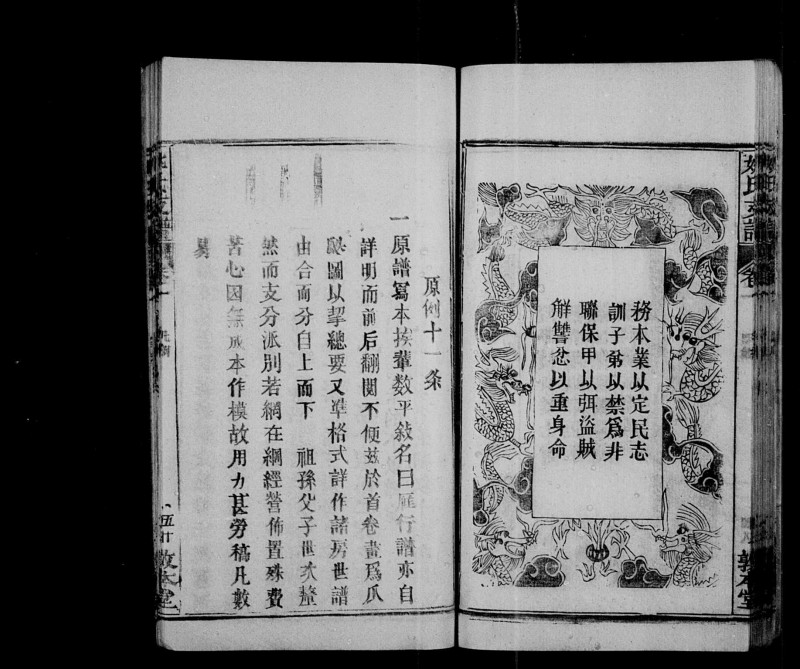 務本業以定民志
訓子弟以禁爲非
聯保甲以弭盜賊
解讐忿以重身命
敦本堂
原例十一条
一原譜寫本挨輩數平敍名曰雁行譜亦自
詳明而前后翻閱不便茲於首卷畫爲爪
瓞圖以挈總要又準格式詳作諸房世譜
由合而分自上而下 祖孫父子世次釐
然而支分派別若網在綱經營佈置殊費
苦心因無成本作模故用力甚勞稿凡數
易
敦本堂